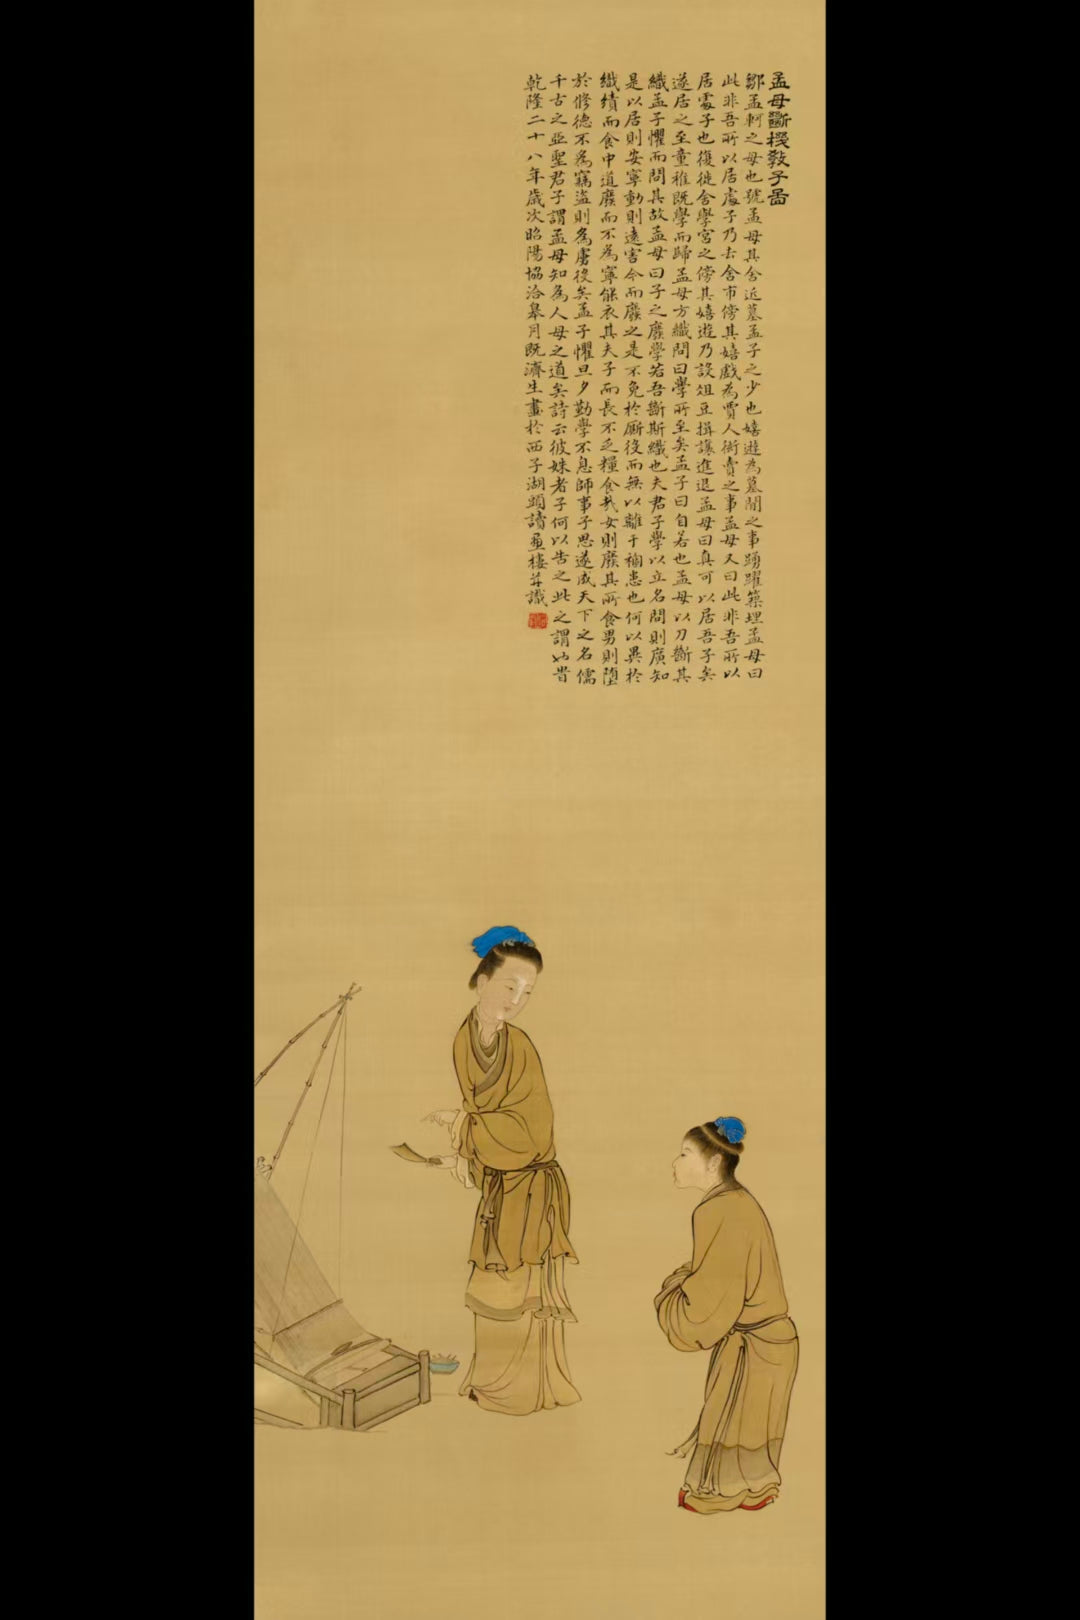 孟母斷機教子圖
鄒孟軻之母也號孟母其舍近墓孟子之少也嬉遊為墓間之事踴躍築埋孟母曰
此非吾所以居處子乃去舍市傍其嬉戲為賈人衒賣之事孟母又曰此非吾所以
居處子也復徙舍學宮之傍其嬉遊乃設俎豆揖讓進退孟母曰真可以居吾子矣
遂居之至童稚既學而歸孟母方織問曰學所至矣孟子曰自若也孟母以刀斷其
織孟子懼而問其故孟母曰子之廢學若吾斷斯織也夫君子學以立名問則廣知
是以居則安寧動則遠害今而廢之是不免於廝役而無以離于禍患也何以異於
織績而食中道廢而不為寧能衣其夫子而長不乏糧食哉女則廢其所食男則墮
於修德不為竊盜則為虜役矣孟子懼旦夕勤學不息師事子思遂成天下之名儒
千古之亞聖君子謂孟母知為人母之道矣詩云彼姝者子何以告之此之謂也昔
乾隆二十八年歲次昭陽協洽皋月既濟生畫於西子湖頭讀畫樓并識